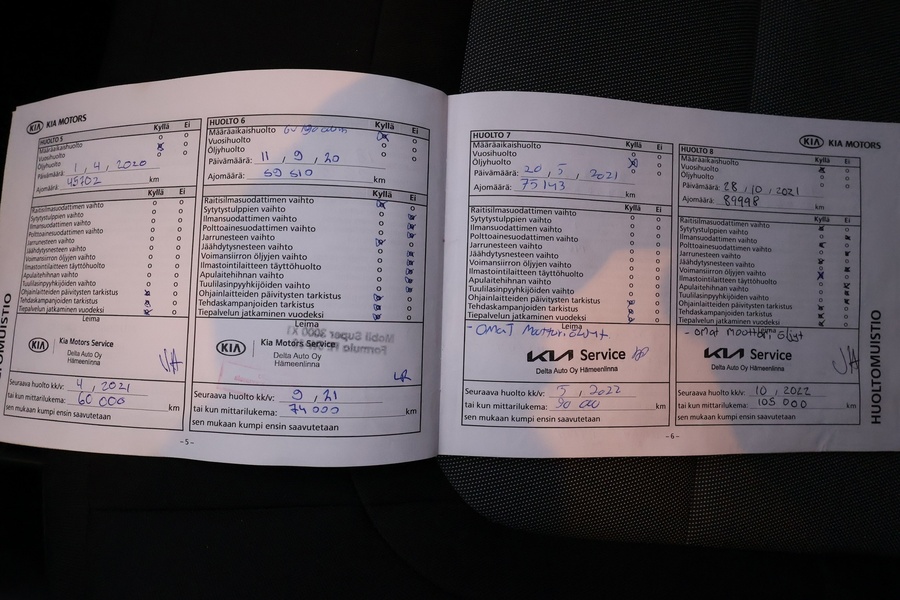 KIA KIA MOTORS
HUOLTO 5
Kyllä Ei
Määräaikaishuolto
Vuosihuolto
Öljyhuolto
Päivämäärä: 1 , 4 , 2020
Ajomäärä: 45702 km
Kyllä Ei
Raitisilmasuodattimen vaihto
Sytytystulppien vaihto
Ilmansuodattimen vaihto
Polttoainesuodattimen vaihto
Jarrunesteen vaihto
Jäähdytysnesteen vaihto
Voimansiirron öljyjen vaihto
Ilmastointilaitteen täyttöhuolto
Apulaitehihnan vaihto
Tuulilasinpyyhkijöiden vaihto
Ohjainlaitteiden päivitysten tarkistus
Tehdaskampanjoiden tarkistus
Tiepalvelun jatkaminen vuodeksi
Leima
KIA Kia Motors Service
Delta Auto Oy
Hämeenlinna
Seuraava huolto kk/v: 4 , 2021
tai kun mittarilukema: 60 000 km
sen mukaan kumpi ensin saavutetaan
-5-
HUOLTO 6
Kyllä Ei
Määräaikaishuolto
Vuosihuolto
Öljyhuolto
Päivämäärä: 11 , 9 , 20
Ajomäärä: 59 510 km
Kyllä Ei
Raitisilmasuodattimen vaihto
Sytytystulppien vaihto
Ilmansuodattimen vaihto
Polttoainesuodattimen vaihto
Jarrunesteen vaihto
Jäähdytysnesteen vaihto
Voimansiirron öljyjen vaihto
Ilmastointilaitteen täyttöhuolto
Apulaitehihnan vaihto
Tuulilasinpyyhkijöiden vaihto
Ohjainlaitteiden päivitysten tarkistus
Tehdaskampanjoiden tarkistus
Tiepalvelun jatkaminen vuodeksi
Leima
Mobil Super 3000 X1
KIA Kia Motors Service
Delta Auto Oy
Hämeenlinna
Seuraava huolto kk/v: 9 , 21
tai kun mittarilukema: 74 000 km
sen mukaan kumpi ensin saavutetaan
HUOLTO 7
Kyllä Ei
Määräaikaishuolto
Vuosihuolto
Öljyhuolto
Päivämäärä: 20 , 5 , 2021
Ajomäärä: 75143 km
Kyllä Ei
Raitisilmasuodattimen vaihto
Sytytystulppien vaihto
Ilmansuodattimen vaihto
Polttoainesuodattimen vaihto
Jarrunesteen vaihto
Jäähdytysnesteen vaihto
Voimansiirron öljyjen vaihto
Ilmastointilaitteen täyttöhuolto
Apulaitehihnan vaihto
Tuulilasinpyyhkijöiden vaihto
Ohjainlaitteiden päivitysten tarkistus
Tehdaskampanjoiden tarkistus
Tiepalvelun jatkaminen vuodeksi
Leima
- OmaT Moottoriöljyt
KIA Service
Delta Auto Oy Hämeenlinna
Seuraava huolto kk/v: 5 , 2022
tai kun mittarilukema: 90 000 km
sen mukaan kumpi ensin saavutetaan
-6-
KIA KIA MOTORS
HUOLTO 8
Kyllä Ei
Määräaikaishuolto
Vuosihuolto
Öljyhuolto
Päivämäärä: 28 , 10 , 2021
Ajomäärä: 89998 km
Kyllä Ei
Raitisilmasuodattimen vaihto
Sytytystulppien vaihto
Ilmansuodattimen vaihto
Polttoainesuodattimen vaihto
Jarrunesteen vaihto
Jäähdytysnesteen vaihto
Voimansiirron öljyjen vaihto
Ilmastointilaitteen täyttöhuolto
Apulaitehihnan vaihto
Tuulilasinpyyhkijöiden vaihto
Ohjainlaitteiden päivitysten tarkistus
Tehdaskampanjoiden tarkistus
Tiepalvelun jatkaminen vuodeksi
Leima
- omat moottoriöljyt
KIA Service
Delta Auto Oy Hämeenlinna
Seuraava huolto kk/v: 10 , 2022
tai kun mittarilukema: 105 000 km
sen mukaan kumpi ensin saavutetaan
HUOLTOMUISTIO